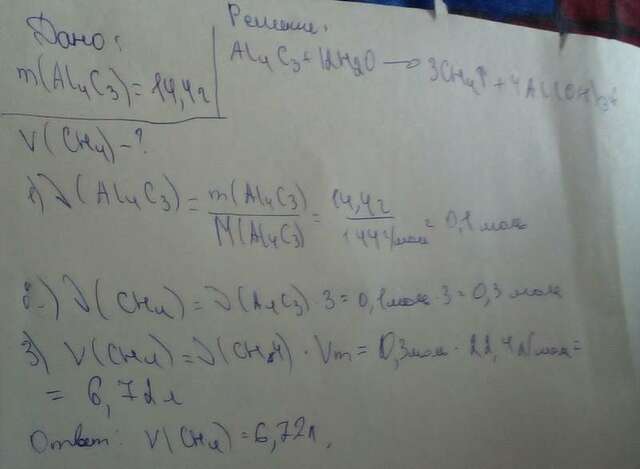 Дано:
Решение:
m(Al4C3)=14,4г
Al4C3+12H2O → 3CH4↑+4Al(OH)3↓
V(CH4)-?
1) ν(Al4C3) = m(Al4C3)/M(Al4C3) = 14,4г/144г/моль = 0,1 моль
2) ν(CH4) = ν(Al4C3) · 3 = 0,1моль · 3 = 0,3 моль
3) V(CH4) = ν(CH4) · Vm = 0,3моль · 22,4л/моль =
= 6,72л
Ответ: V(CH4) = 6,72л,